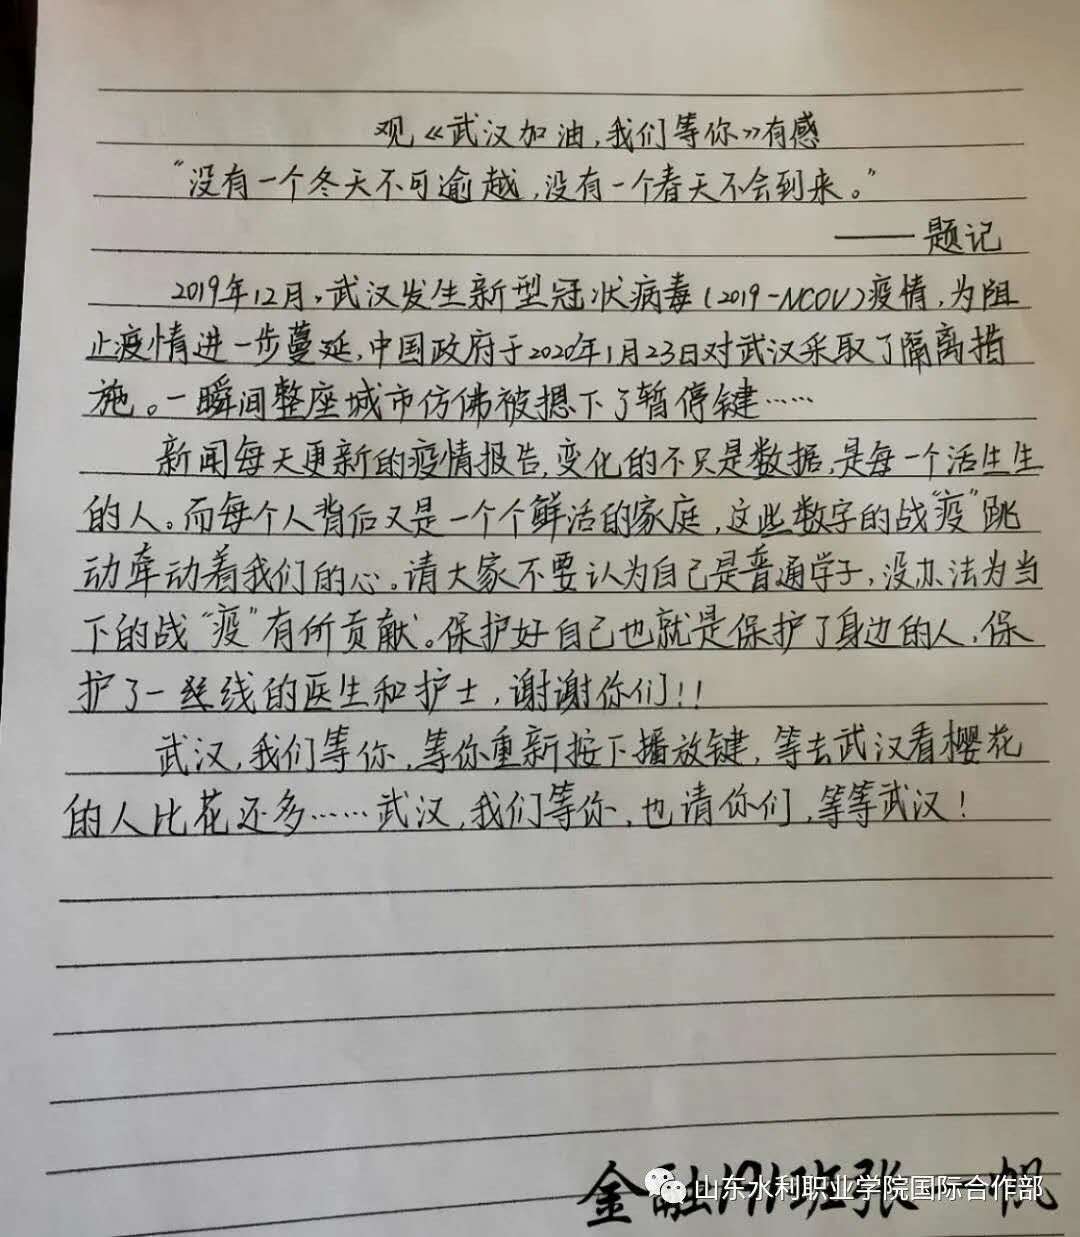 观《武汉加油,我们等你》有感
“没有一个冬天不可逾越,没有一个春天不会到来。”
——题记
2019年12月,武汉发生新型冠状病毒(2019-NCOV)疫情,为阻
止疫情进一步蔓延,中国政府于2020年1月23日对武汉采取了隔离措
施。一瞬间整座城市仿佛被摁下了暂停键……
新闻每天更新的疫情报告,变化的不只是数据,是每一个活生生
的人。而每个人背后又是一个个鲜活的家庭,这些数字的战“疫”跳
动牵动着我们的心。请大家不要认为自己是普通学子,没办法为当
下的战“疫”有所贡献。保护好自己也就是保护了身边的人,保
护了一线的医生和护士,谢谢你们!!
武汉,我们等你,等你重新按下播放键,等去武汉看樱花
的人比花还多……武汉,我们等你,也请你们,等等武汉!
金融191班张一帆
山东水利职业学院国际合作部